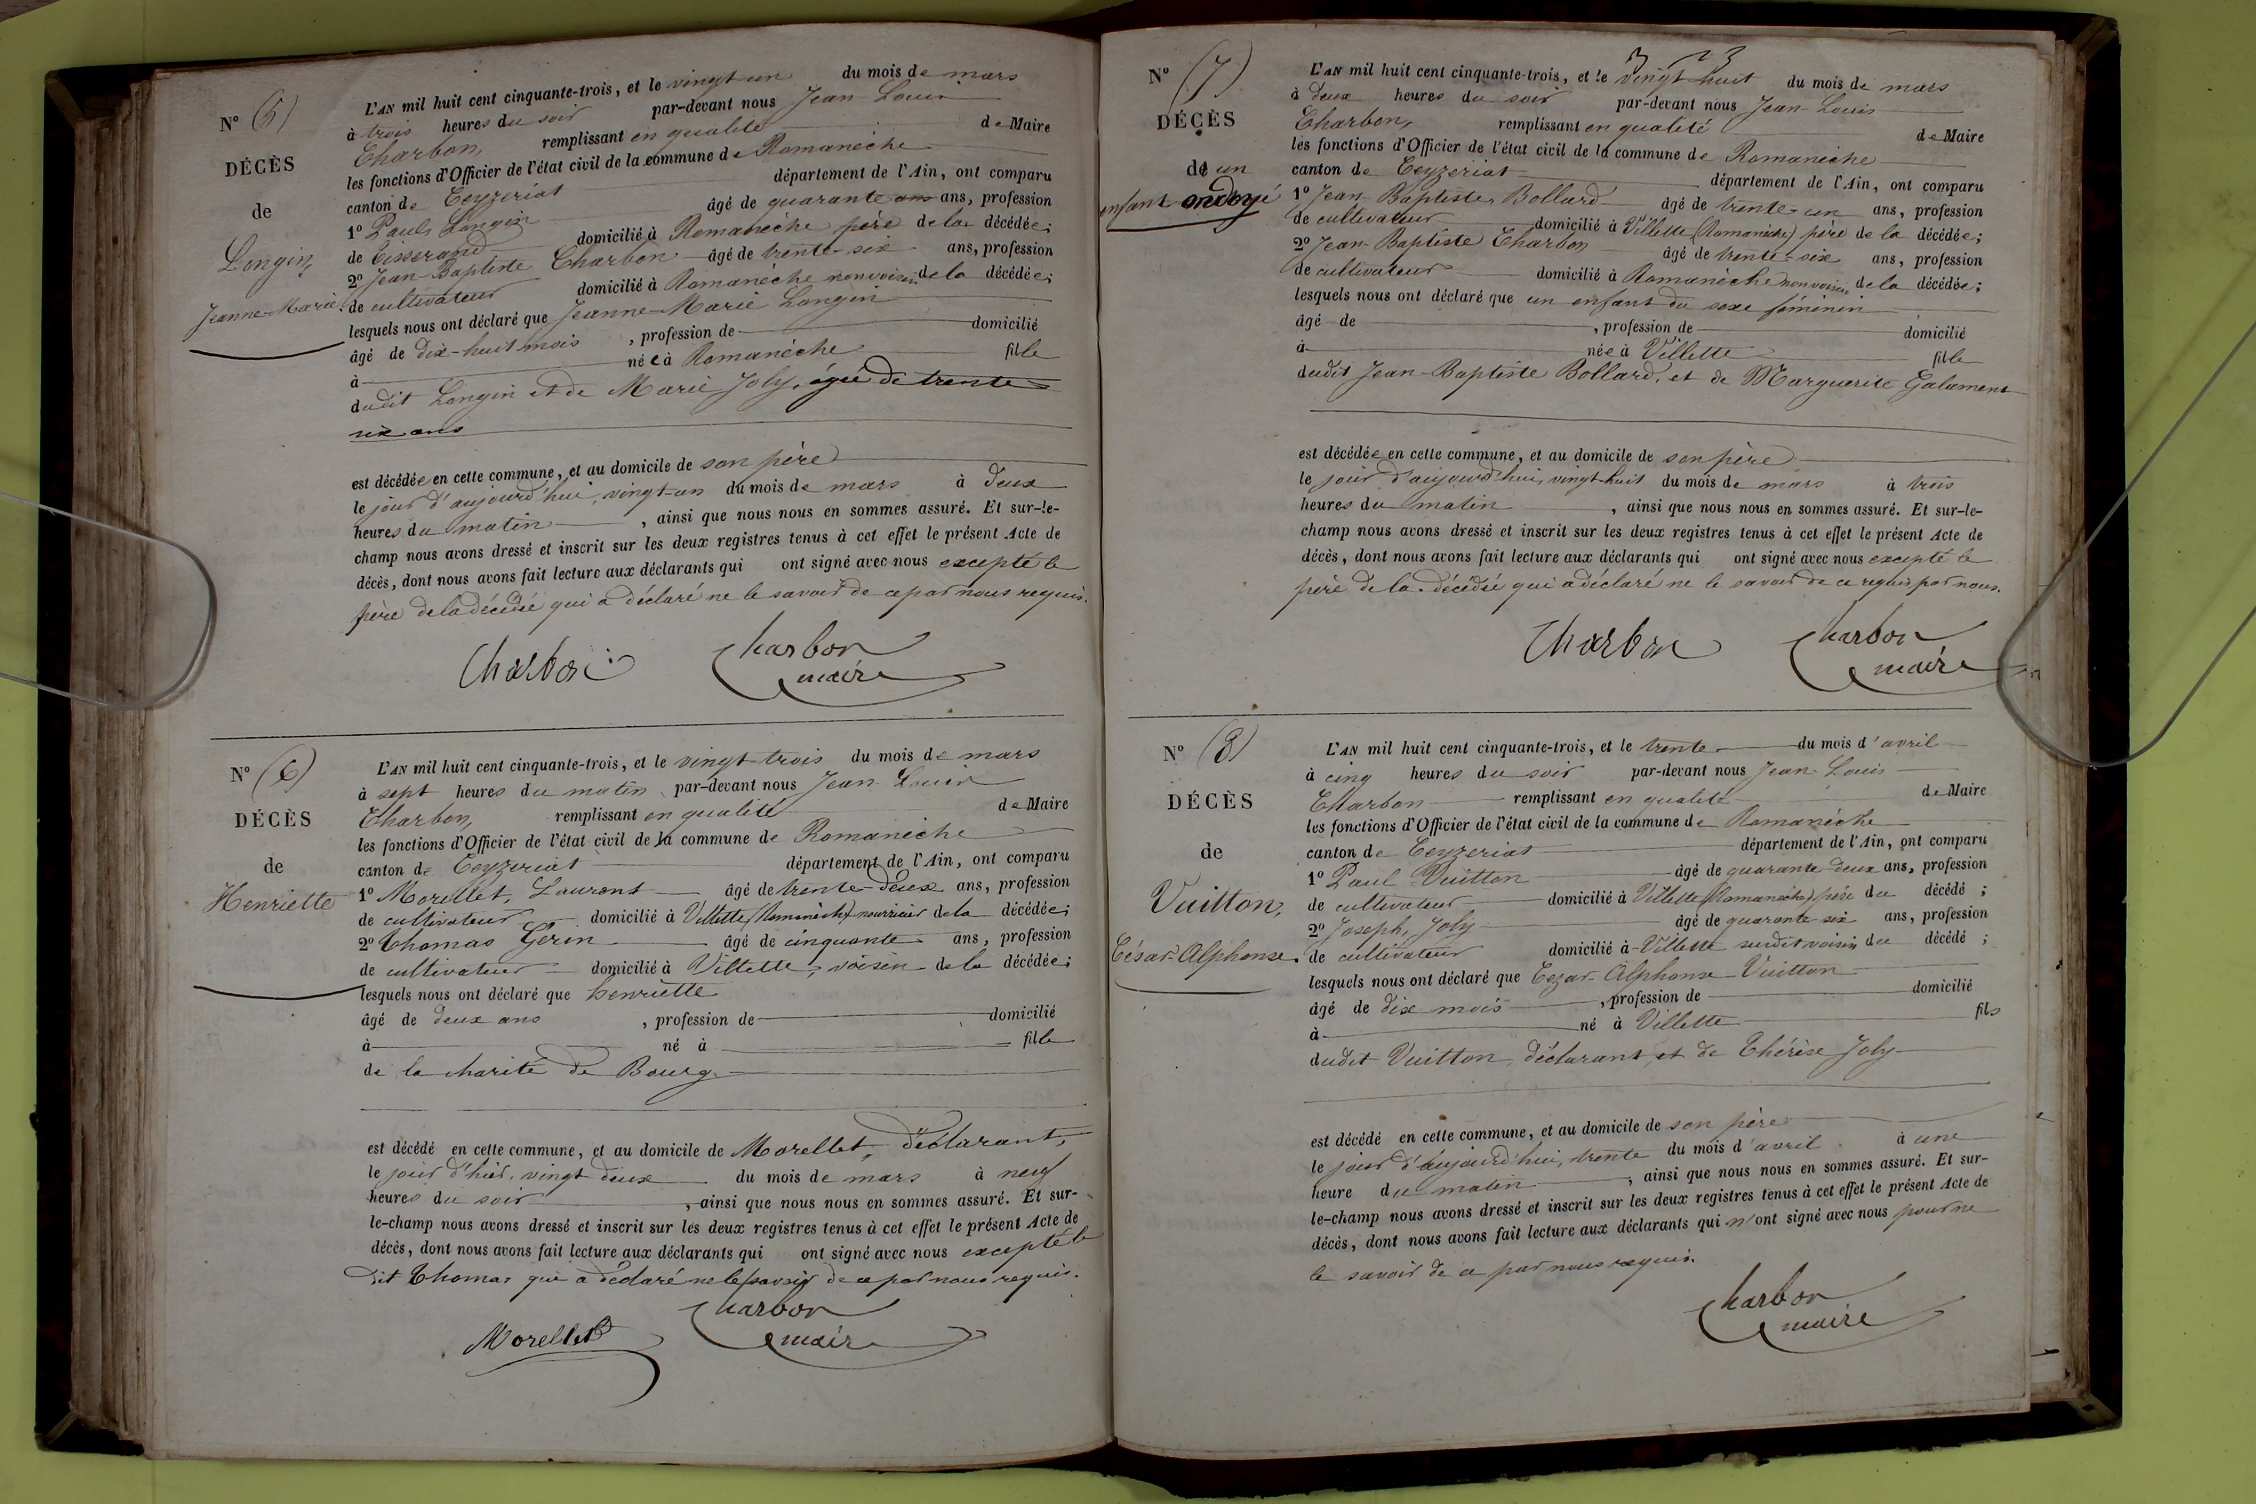 N° (5)
DÉCÈS
de
Longin,
Jeanne-Marie.
L'AN mil huit cent cinquante-trois, et le vingt-un du mois de mars
à trois heures du soir par-devant nous Jean-Louis
Charbon, remplissant en qualité de Maire
les fonctions d'Officier de l'état civil de la commune de Romanèche
canton de Ceyzeriat département de l'Ain, ont comparu
1° Paul Longin âgé de quarante ans ans, profession
de Tisserand domicilié à Romanèche père de la décédée;
2° Jean-Baptiste Charbon âgé de trente-six ans, profession
de cultivateur domicilié à Romanèche non voisin de la décédée;
lesquels nous ont déclaré que Jeanne-Marie Longin
âgé de dix-huit mois , profession de domicilié
à née à Romanèche fille
dudit Longin et de Marie Joly, âgée de trente
six ans
est décédée en cette commune, et au domicile de son père
le jour d'aujourd'hui, vingt-un du mois de mars à deux
heures du matin , ainsi que nous nous en sommes assuré. Et sur-le-
champ nous avons dressé et inscrit sur les deux registres tenus à cet effet le présent Acte de
décès, dont nous avons fait lecture aux déclarants qui ont signé avec nous excepté le
père de la décédée qui a déclaré ne le savoir de ce par nous requis.
Charbon Charbon
maire
N° (6)
DÉCÈS
de
Henriette
L'AN mil huit cent cinquante-trois, et le vingt-trois du mois de mars
à sept heures du matin par-devant nous Jean-Louis
Charbon, remplissant en qualité de Maire
les fonctions d'Officier de l'état civil de la commune de Romanèche
canton de Ceyzeriat département de l'Ain, ont comparu
1° Morellet, Laurent âgé de trente-deux ans, profession
de cultivateur domicilié à Villette (Romanèche) nourricier de la décédée;
2° Thomas Gerin âgé de cinquante ans, profession
de cultivateur domicilié à Villette, voisin de la décédée;
lesquels nous ont déclaré que henriette
âgé de deux ans , profession de domicilié
à né à fille
de la charité de Bourg
est décédé en cette commune, et au domicile de Morellet, déclarant,
le jour d'hier, vingt deux du mois de mars à neuf
heures du soir , ainsi que nous nous en sommes assuré. Et sur-
le-champ nous avons dressé et inscrit sur les deux registres tenus à cet effet le présent Acte de
décès, dont nous avons fait lecture aux déclarants qui ont signé avec nous excepté le
dit Thomas qui a déclaré ne le savoir de ce par nous requis.
Morellet Charbon
maire
N° (7)
DÉCÈS
de un
enfant ondoyé
L'AN mil huit cent cinquante-trois, et le vingt-huit du mois de mars
à deux heures du soir par-devant nous Jean-Louis
Charbon, remplissant en qualité de Maire
les fonctions d'Officier de l'état civil de la commune de Romanèche
canton de Ceyzeriat département de l'Ain, ont comparu
1° Jean-Baptiste Bollard âgé de trente-un ans, profession
de cultivateur domicilié à Villette (Romanèche) père de la décédée;
2° Jean-Baptiste Charbon âgé de trente-six ans, profession
de cultivateur domicilié à Romanèche non voisin de la décédée;
lesquels nous ont déclaré que un enfant du sexe féminin
âgé de , profession de domicilié
à née à Villette fille
dudit Jean-Baptiste Bollard, et de Marguerite Galament
est décédée en cette commune, et au domicile de son père
le jour d'aujourd'hui, vingt-huit du mois de mars à trois
heures du matin , ainsi que nous nous en sommes assuré. Et sur-le-
champ nous avons dressé et inscrit sur les deux registres tenus à cet effet le présent Acte de
décès, dont nous avons fait lecture aux déclarants qui ont signé avec nous excepté le
père de la décédée qui a déclaré ne le savoir de ce requis par nous.
Charbon Charbon
maire
N° (8)
DÉCÈS
de
Vuitton,
César-Alphonse.
L'AN mil huit cent cinquante-trois, et le trente du mois d'avril
à cinq heures du soir par-devant nous Jean-Louis
Charbon remplissant en qualité de Maire
les fonctions d'Officier de l'état civil de la commune de Romanèche
canton de Ceyzeriat département de l'Ain, ont comparu
1° Paul Vuitton âgé de quarante deux ans, profession
de cultivateur domicilié à Villette (Romanèche) père du décédé ;
2° Joseph, Joly âgé de quarante-six ans, profession
de cultivateur domicilié à Villette susdit voisin du décédé ;
lesquels nous ont déclaré que Cezar-Alphonse Vuitton
âgé de dix mois , profession de domicilié
à né à Villette fils
dudit Vuitton, déclarant, et de Thérèse Joly
est décédé en cette commune, et au domicile de son père
le jour d'aujourd'hui, trente du mois d'avril à une
heure du matin , ainsi que nous nous en sommes assuré. Et sur-
le-champ nous avons dressé et inscrit sur les deux registres tenus à cet effet le présent Acte de
décès, dont nous avons fait lecture aux déclarants qui n'ont signé avec nous pour ne
le savoir de ce par nous requis.
Charbon
maire